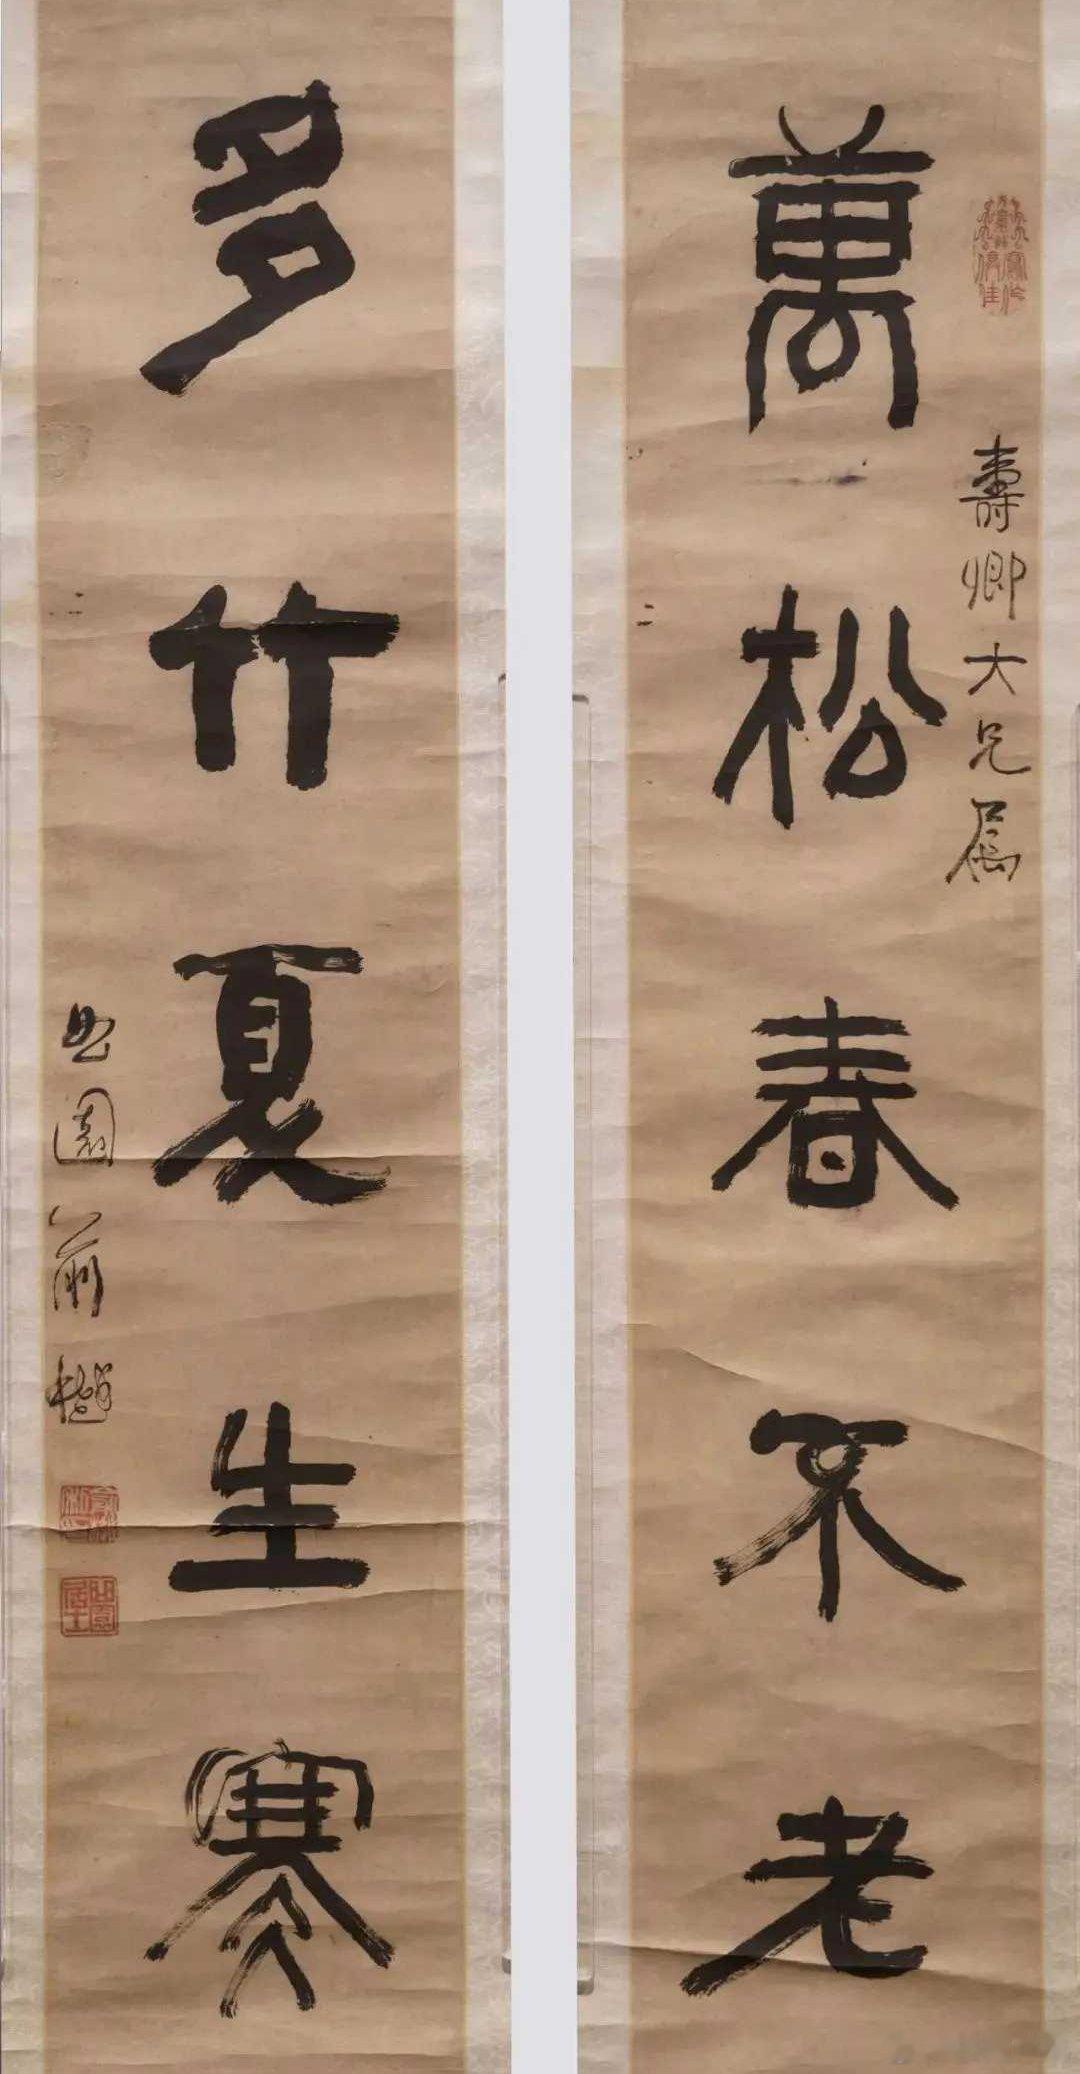 壽卿大兄属
萬松春不老
多竹夏生寒
曲園俞樾
曲園居士